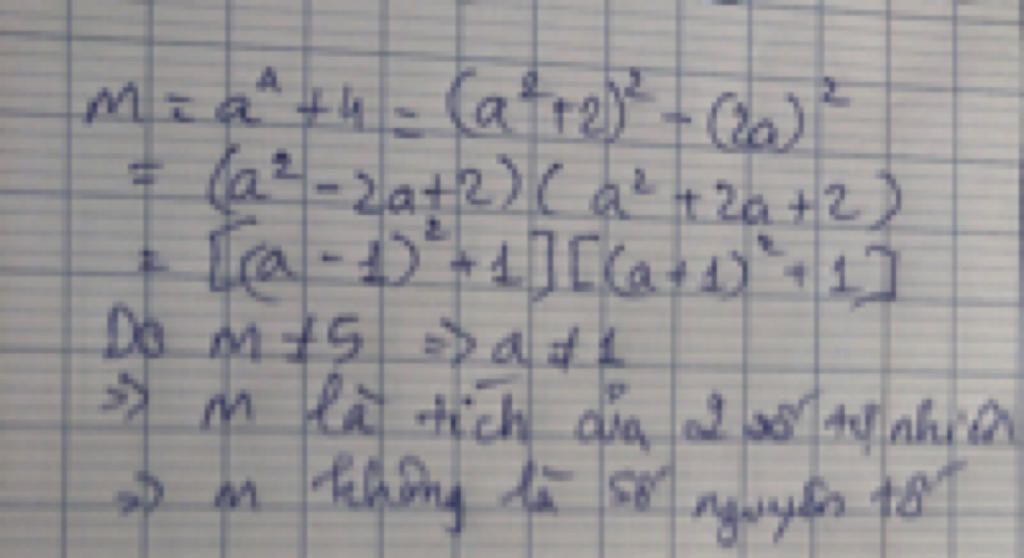 m = a⁴ + 4 = (a² + 2)² - (2a)²
= (a² - 2a + 2)(a² + 2a + 2)
= [(a - 1)² + 1][(a + 1)² + 1]
Do m ≠ 5 => a ≠ 1
=> m là tích của 2 số tự nhiên
=> m không là số nguyên tố